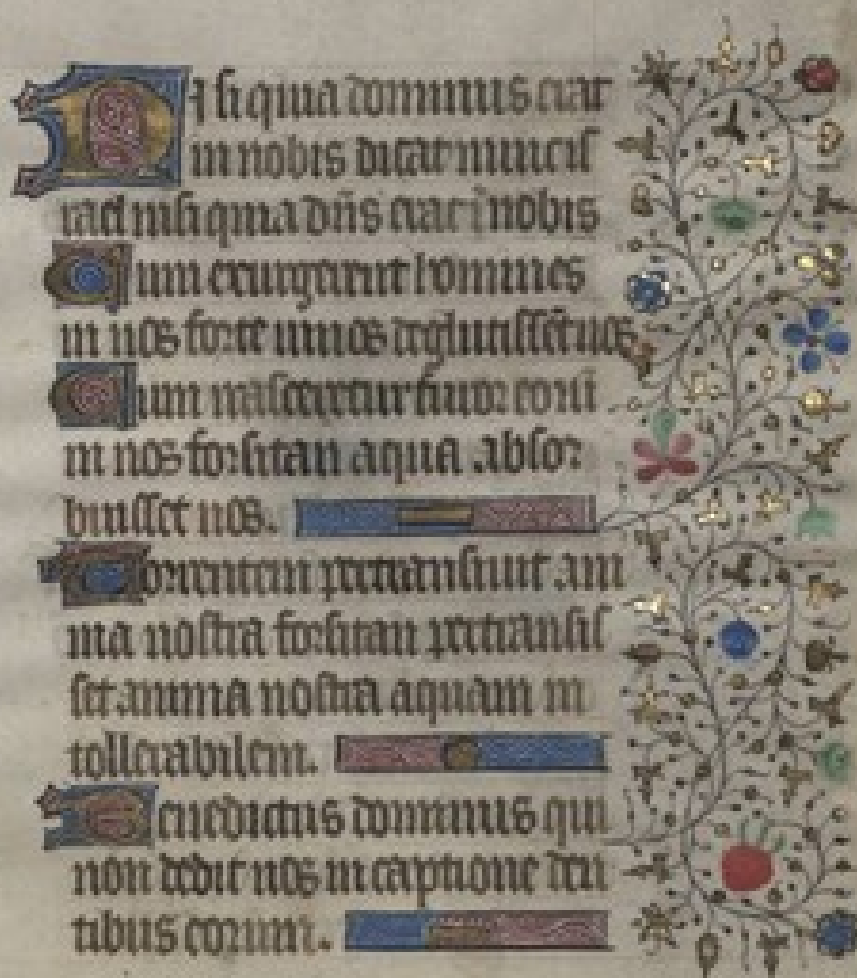 Nisi quia dominus erat
in nobis dicat nunc is
rael nisi quia dñs erat ĩ nobis
Cum exurgerent homines
in nos forte uiuos deglutissẽt nos
Cum irasceretur furor eorũ
in nos forsitan aqua absor
buisset nos.
Torrentem pertransiuit ani
ma nostra forsitan pertransis
set anima nostra aquam in
tollerabilem.
Benedictus dominus qui
non dedit nos in captione den
tibus eorum.